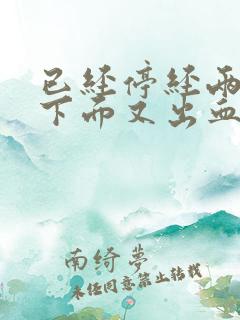 已经停经两
下面又出血
南绮梦
未经同意禁止转载